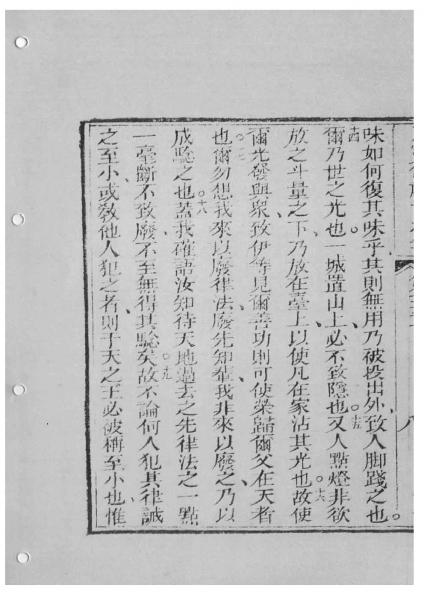 味如何復其味乎其則無用乃被投出外致人脚踐之也。
十四爾乃世之光也。一城置山上必不致隱也。十五又人點燈非欲
放之斗量之下乃放在臺上以使凡在家沾其光也。十六故使
爾光發與衆致伊等見爾善功則可使榮歸爾父在天者
也。十七爾勿想我來以廢律法廢先知輩我非來以廢之乃以
成驗之也。十八蓋我確語汝知待天地過去之先律法之一點
一毫斷不致廢不至無得其驗矣。十九故不論何人犯其律誡
之至小或敎他人犯之者則于天之王必被稱至小也惟